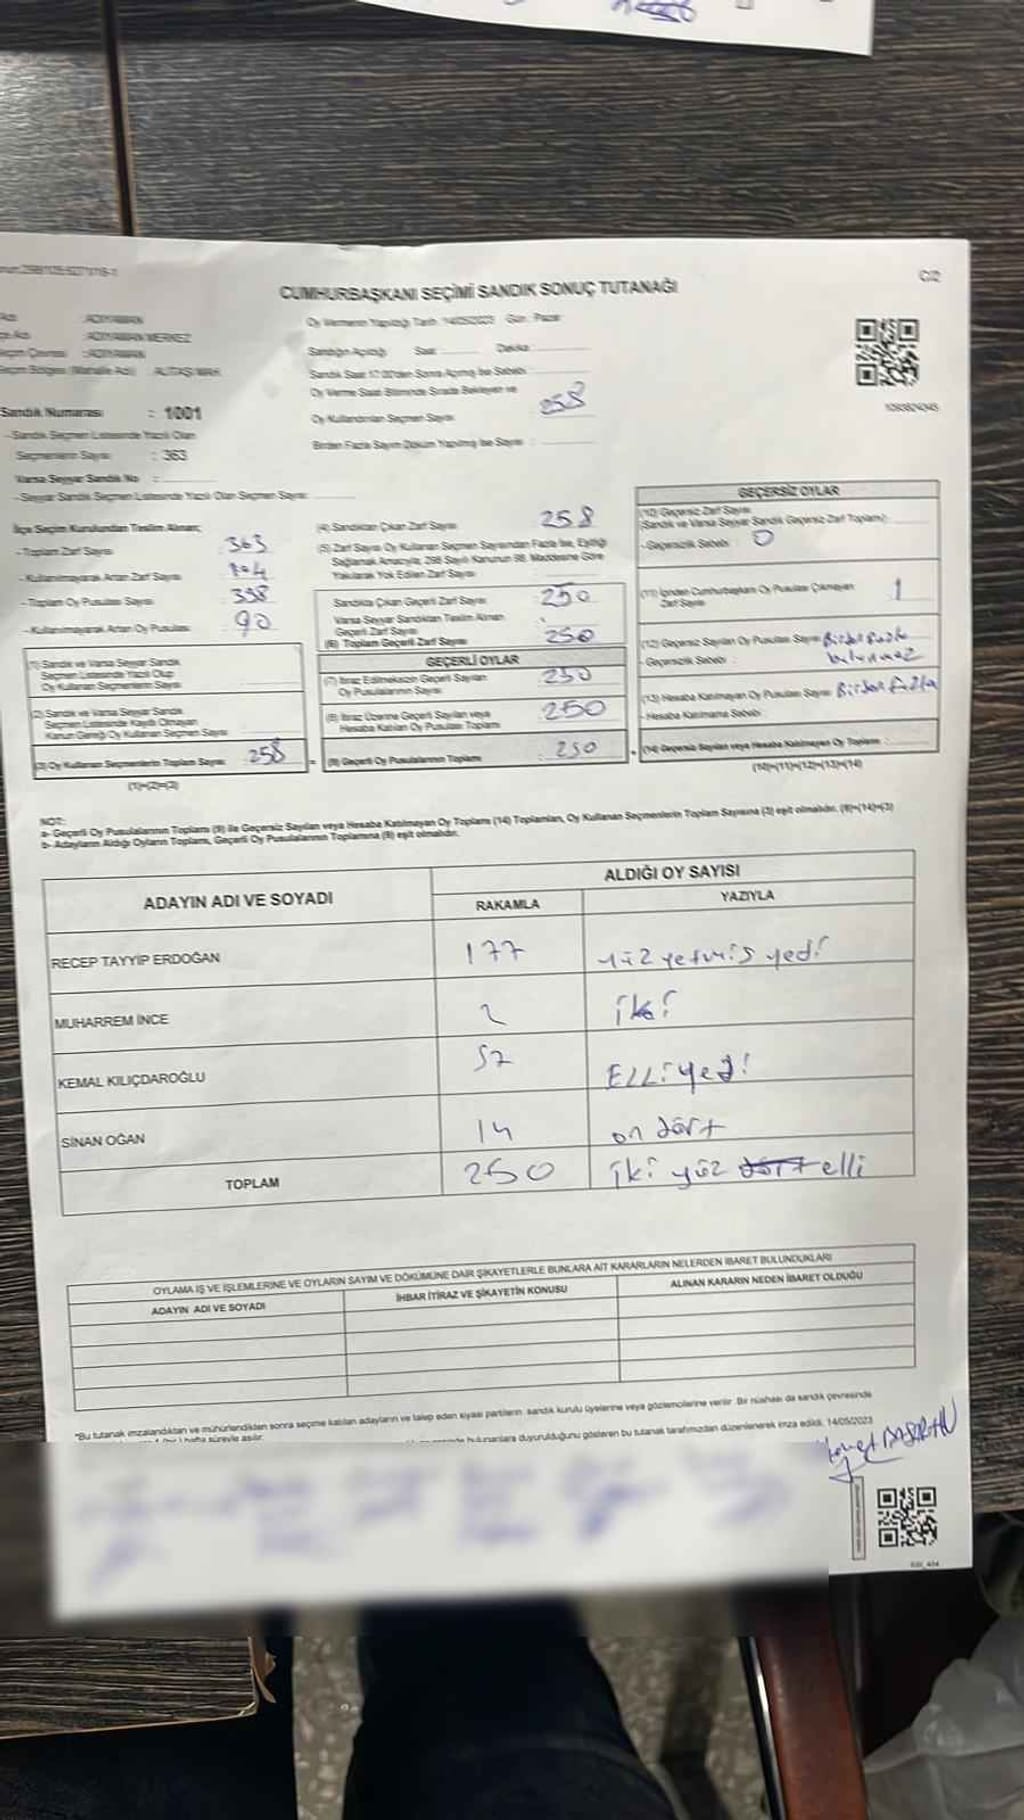 C/2
CUMHURBAŞKANI SEÇİMİ SANDIK SONUÇ TUTANAĞI
ADIYAMAN
Oy Vermenin Yapıldığı Tarih: 14/05/2023 Gün: Pazar
ADIYAMAN MERKEZ
:ADIYAMAN
Sandığın Açıldığı Saat Dakika
Sandık Saat 17.00'den Sonra Açılmış İse Sebebi
Oy Verme Saati Bitiminde Sırada Bekleyen ve
Oy Kullandırılan Seçmen Sayısı 258
Birden Fazla Sayım Döküm Yapılmış İse Sayısı :
Sandık Numarası : 1001
-Sandık Seçmen Listesinde Yazılı Olan
Seçmenlerin Sayısı : 363
Varsa Seyyar Sandık No :
-Seyyar Sandık Seçmen Listesinde Yazılı Olan Seçmen Sayısı:
İlçe Seçim Kurulundan Teslim Alınan;
-Toplam Zarf Sayısı 363
-Kullanılmayarak Artan Zarf Sayısı
-Toplam Oy Pusulası Sayısı
-Kullanılmayarak Artan Oy Pusulası 90
(1) Sandık ve Varsa Seyyar Sandık
Seçmen Listesinde Yazılı Olup
Oy Kullanan Seçmenlerin Sayısı
(2) Sandık ve Varsa Seyyar Sandık
Seçmen Listesinde Kayıtlı Olmayan
Kanun Gereği Oy Kullanan Seçmen Sayısı
(3) Oy Kullanan Seçmenlerin Toplam Sayısı 258
(1)+(2)=(3)
(4) Sandıktan Çıkan Zarf Sayısı 258
(5) Zarf Sayısı Oy Kullanan Seçmen Sayısından Fazla İse, Eşitliği
Sağlamak Amacıyla, 298 Sayılı Kanunun 98. Maddesine Göre
Yakılarak Yok Edilen Zarf Sayısı
Sandıkta Çıkan Geçerli Zarf Sayısı 250
Varsa Seyyar Sandıktan Teslim Alınan
Geçerli Zarf Sayısı
(6) Toplam Geçerli Zarf Sayısı 250
GEÇERLİ OYLAR
(7) İtiraz Edilmeksizin Geçerli Sayılan
Oy Pusulalarının Sayısı 250
(8) İtiraz Üzerine Geçerli Sayılan veya
Hesaba Katılan Oy Pusulası Toplamı 250
(9) Geçerli Oy Pusulalarının Toplamı 250
GEÇERSİZ OYLAR
(10) Geçersiz Zarf Sayısı
(Sandık ve Varsa Seyyar Sandık Geçersiz Zarf Toplamı):
-Geçersizlik Sebebi : 0
(11) İçinden Cumhurbaşkanı Oy Pusulası Çıkmayan
Zarf Sayısı 1
(12) Geçersiz Sayılan Oy Pusulası Sayısı Birden fazla
-Geçersizlik Sebebi : bulunmaz
(13) Hesaba Katılmayan Oy Pusulası Sayısı Birden fazla
-Hesaba Katılmama Sebebi
(14) Geçersiz Sayılan veya Hesaba Katılmayan Oy Toplamı
(10)+(11)+(12)+(13)=(14)
NOT:
a- Geçerli Oy Pusulalarının Toplamı (9) ile Geçersiz Sayılan veya Hesaba Katılmayan Oy Toplamı (14) Toplamları, Oy Kullanan Seçmenlerin Toplam Sayısına (3) eşit olmalıdır. (9)+(14)=(3)
b- Adayların Aldığı Oyların Toplamı, Geçerli Oy Pusulalarının Toplamına (9) eşit olmalıdır.
ADAYIN ADI VE SOYADI
ALDIĞI OY SAYISI
RAKAMLA YAZIYLA
RECEP TAYYİP ERDOĞAN 177 yüz yetmiş yedi
MUHARREM İNCE 2 iki
KEMAL KILIÇDAROĞLU 57 Elli yedi
SİNAN OĞAN 14 on dört
TOPLAM 250 iki yüz dört elli
OYLAMA İŞ VE İŞLEMLERİNE VE OYLARIN SAYIM VE DÖKÜMÜNE DAİR ŞİKAYETLERLE BUNLARA AİT KARARLARIN NELERDEN İBARET BULUNDUKLARI
ADAYIN ADI VE SOYADI İHBAR İTİRAZ VE ŞİKAYETİN KONUSU ALINAN KARARIN NEDEN İBARET OLDUĞU
*Bu tutanak imzalandıktan ve mühürlendikten sonra seçime katılan adayların ve talep eden siyasi partilerin sandık kurulu üyelerine veya gözlemcilerine verilir. Bir nüshası da sandık çevresinde
bulunanlara duyurulduğunu gösteren bu tutanak tarafımızdan düzenlenerek imza edildi. 14/05/2023